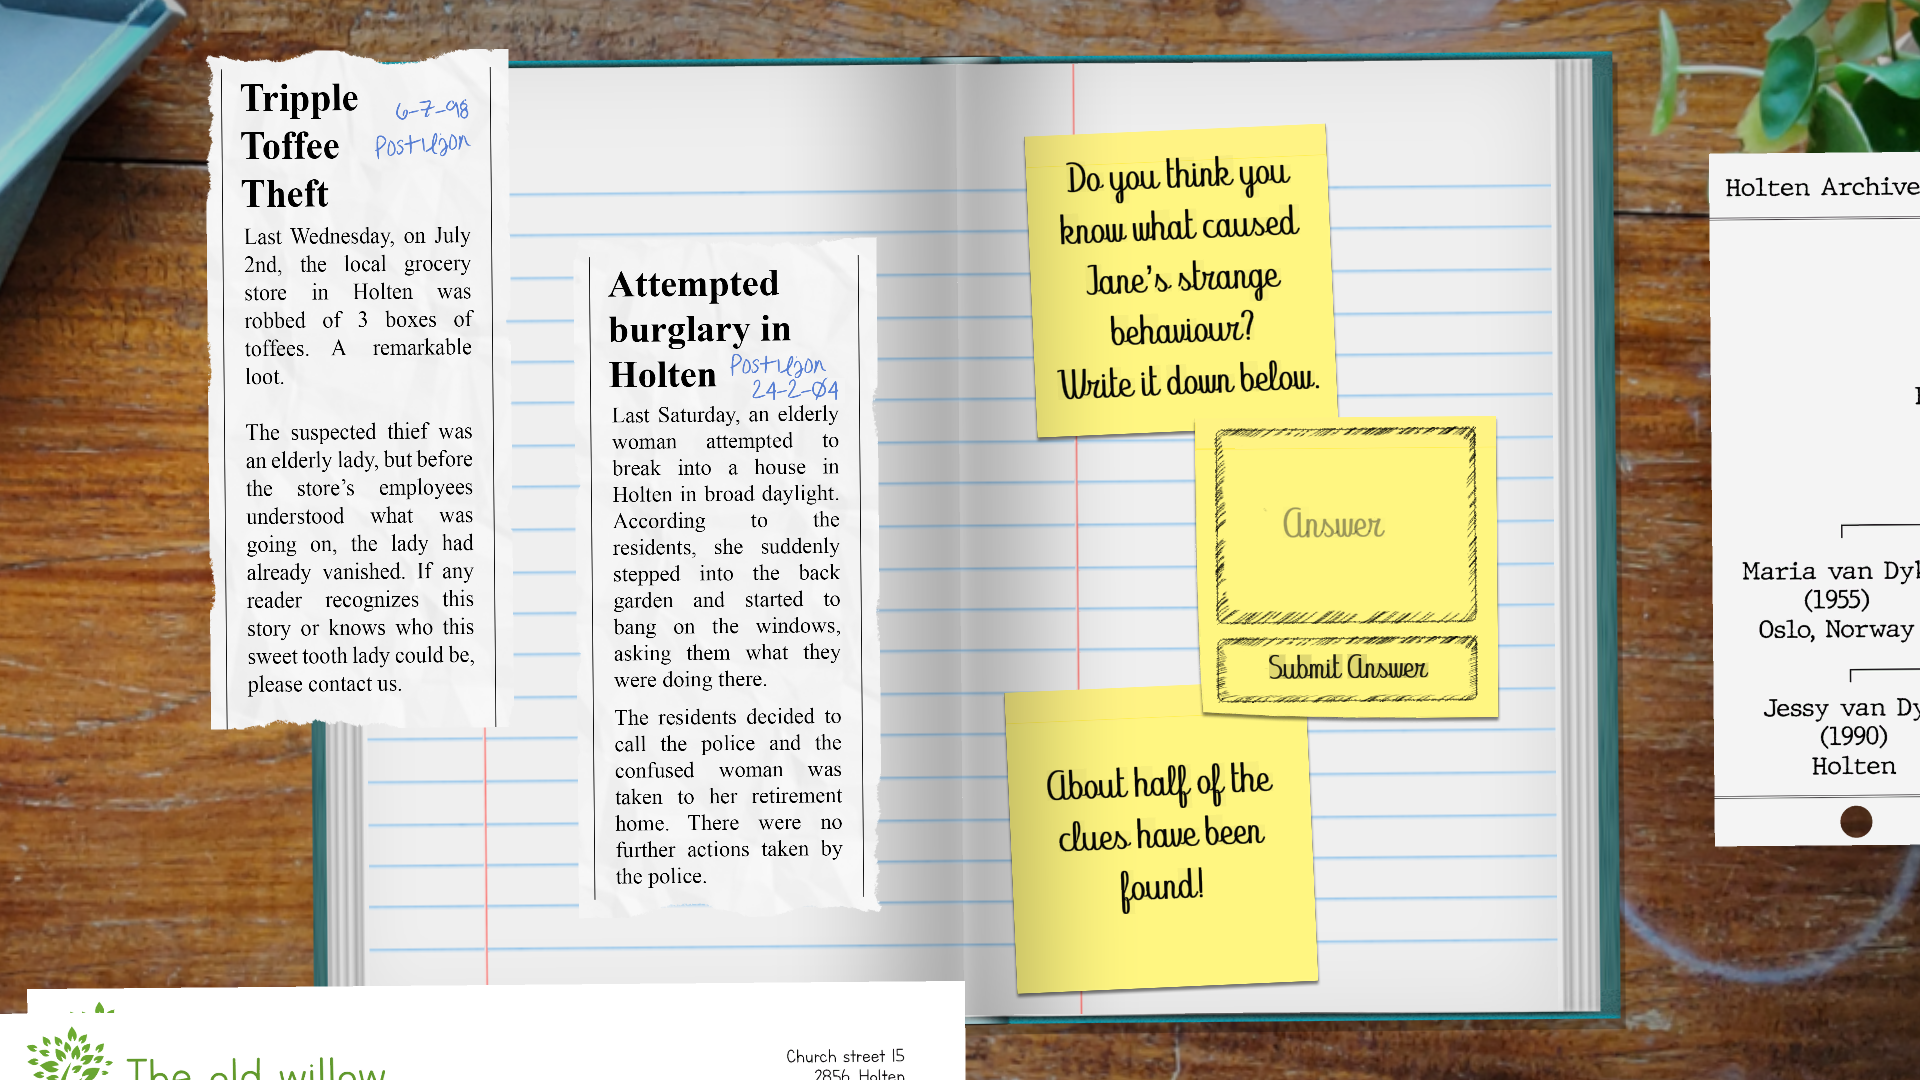 Tripple
Toffee
Theft
6-7-98
Last Wednesday, on July
2nd, the local grocery
store in Holten was
robbed of 3 boxes of
toffees. A remarkable
loot.
The suspected thief was
an elderly lady, but before
the store's employees
understood what was
going on, the lady had
already vanished. If any
reader recognizes this
story or knows who this
sweet tooth lady could be,
please contact us.
Attempted
burglary in
Holten
24-2-04
Last Saturday, an elderly
woman attempted to
break into a house in
Holten in broad daylight.
According to the
residents, she suddenly
stepped into the back
garden and started to
bang on the windows,
asking them what they
were doing there.
The residents decided to
call the police and the
confused woman was
taken to her retirement
home. There were no
further actions taken by
the police.
The old willow
Church street 15
2856 Holten
Do you think you
know what caused
Jane's strange
behaviour?
Write it down below.
Answer
Submit Answer
About half of the
clues have been
found!
Holten Archive
Maria van Dyk
(1955)
Oslo, Norway
Jessy van Dy
(1990)
Holten